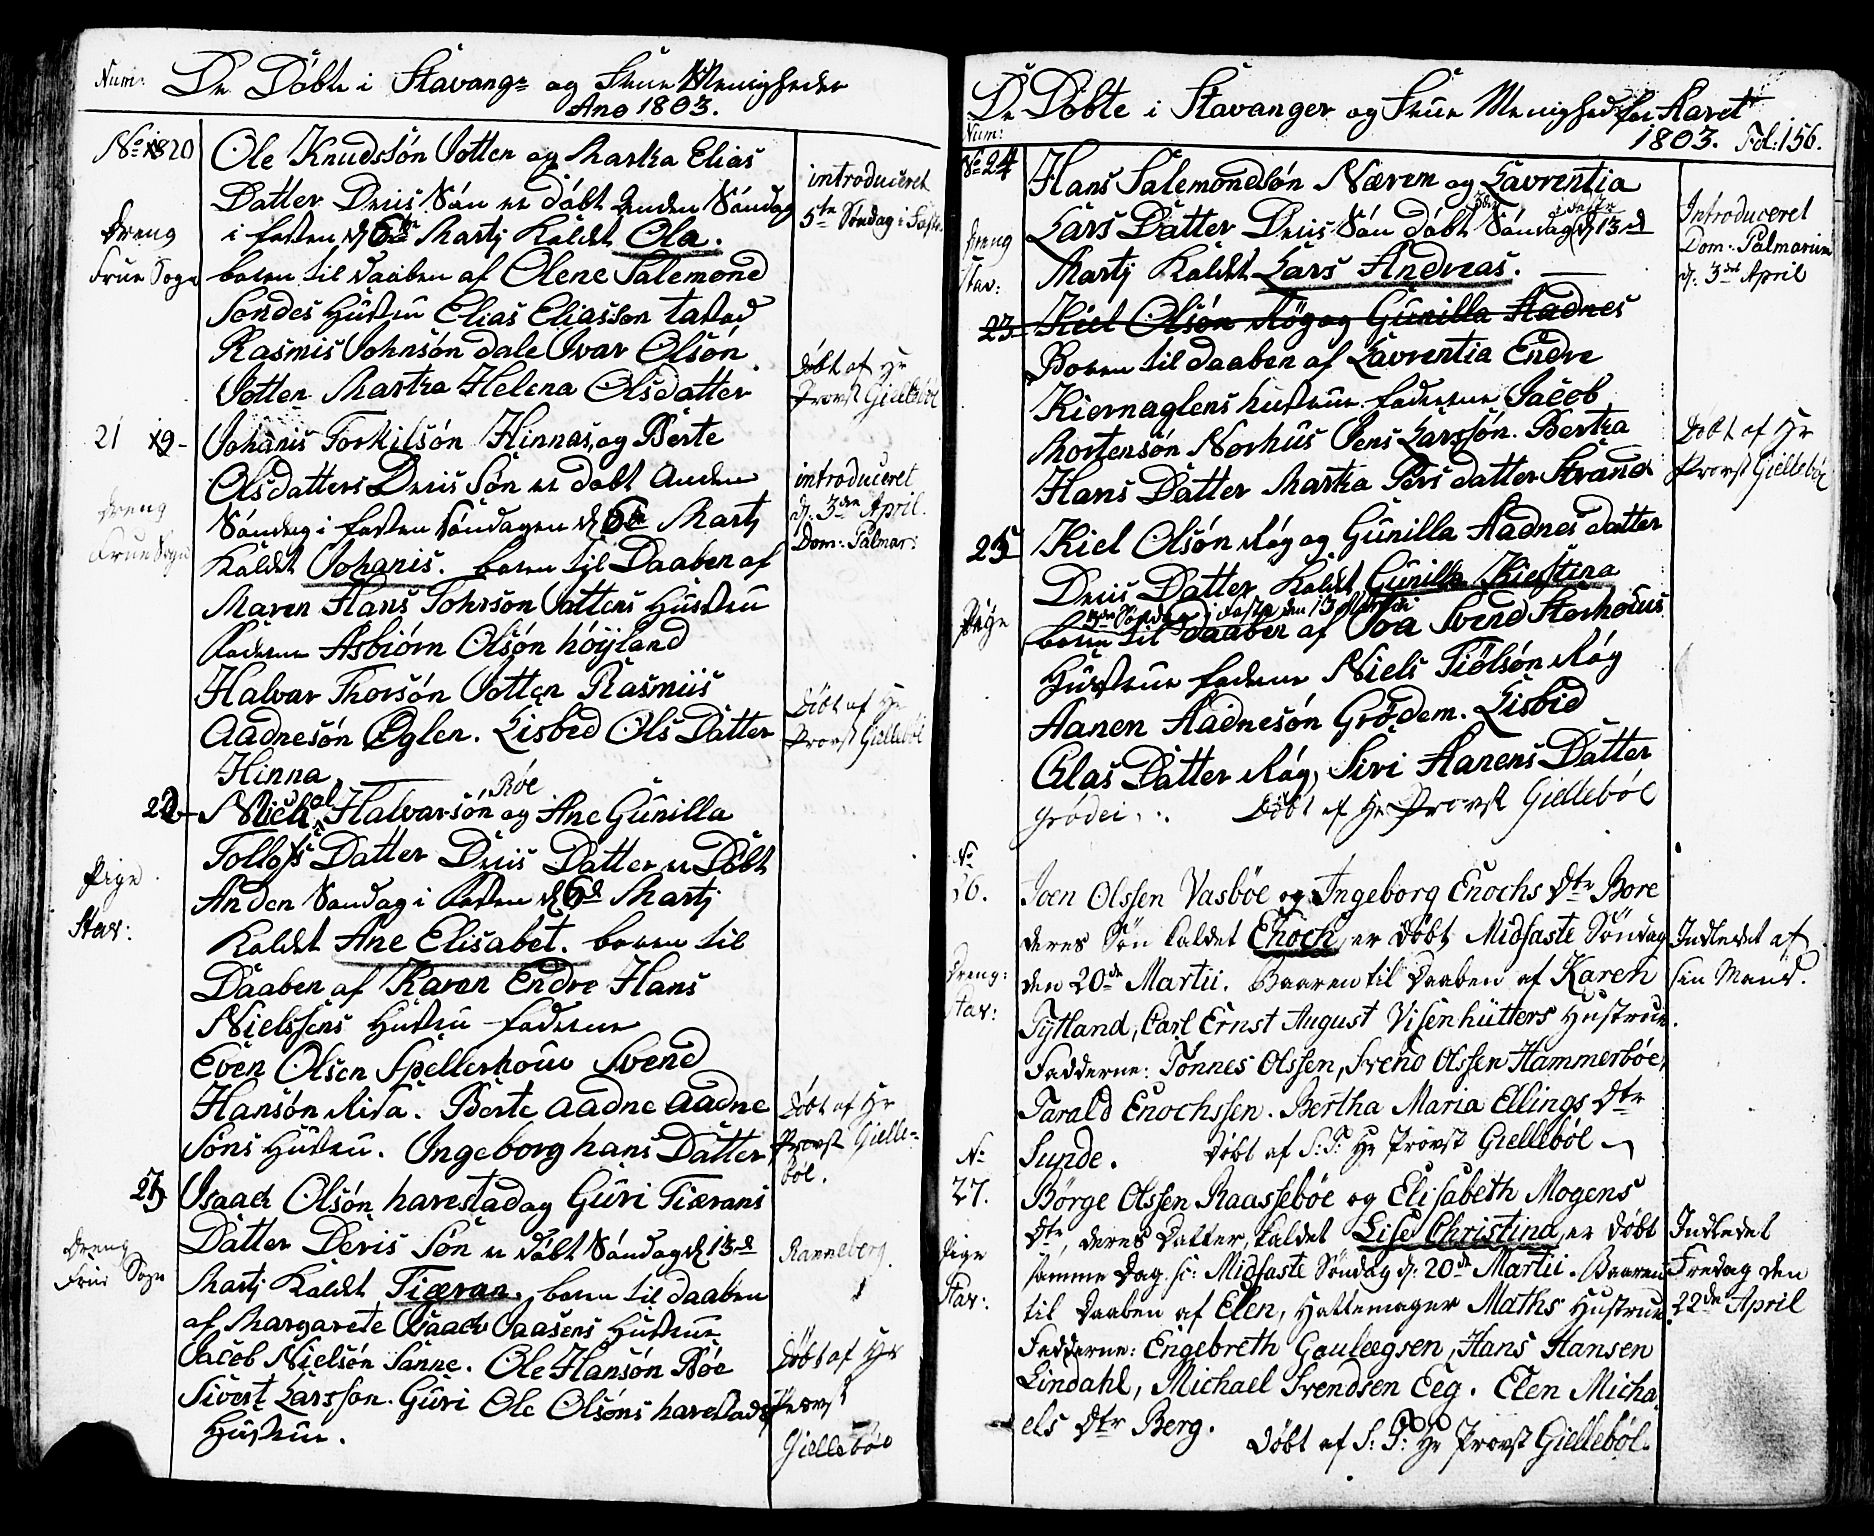 Num: De Döbte i Stavangr og Frue Menigheder
Ano 1803.
No 20
Ole Knudssón Votten og Martha Elias
Datter Deris Són er dóbt Anden Sóndag
i fasten d 6te Martj Kaldt Ola.
baren til Daaben af Olene Salemond
Sondes Hustru Elias Eliasson tastad
Rasmis Johnsón dale Ivar Olsón
Votten Martha Helena Olsdatter
Dreng
Frue Sogn
introduceret
5te Söndag i Faste
Döbt af Hr
Provst Giellebøl
21
Johanis Torkilsón Hinnas, og Berte
Olsdatters Deris Són er dobt Anden
Sóndag i fasten Sondagen d 6te Martj
Kaldt Johanis. baren til Daaben af
Maren Hans Tohrson Vattens Hustru
faderne Asbiórn Olsón höyland
Halvar Thorsón Votten Rasmus
Aadnesón Oglen. Lisbed Ols Datter
Hinna
Dreng
Frue Sogn
introduceret
d. 3de April.
Dom: Palmar:
Döbt af Hr
Provst Giellebøl
22
Michal Halvarsón Röe og Ane Gunilla
Tollofs Datter Deris Datter er Döbt
Anden Sondag i Fasten d 6d Martj
Kaldt Ane Elisabet. baren til
Daaben af Karen Endre Hans
Nielssens Hustru faderne
Even Olsen Spellerhoug Svend
Hansón Risa. Berte Aadne Aadne
Sóns Hustru. Ingeborg hans Datter
Pige
Stav:
Döbt af Hr
Provst Gielle-
bøl.
23
Isaach Olsón harestad og Guri Tiærans
Datter Deris Són er dóbt Sóndag d 13d
Martj Kaldt Tiæran. baren til daaben
af Margarete Isaach Vaasens Hustrue
Jacob Nielsón Sanne. Ole Hansón Böe
Sivert Larsson. Guri Ole Olsóns harestads
Hustru.
Dreng
Frue Sogn
Ranneberg
Döbt af Hr
Provst
Giellebøl
De Döbte i Stavanger og Frue Menighed for Aaret
Num: 1803. Fol: 156.
No 24
Hans Salemondsön Nærem og Lavrentia
Lars Datter Deris Són döbt 3de Söndag i Faste d 13d
Martj Kaldt Lars Andreas.
23 Kiel Olsón Róg og Gunilla Aadnes
Baren til daaben af Lavrentia Endre
Kiernaglens hustrue faderne Jacob
Mortensón Norhus Jens Larssón. Bertha
Hans Datter Martha Pers datter Strand
Dreng
Stav:
Introduceret
Dom: Palmarum
d: 3de April
Döbt af Hr
Provst Giellebøl
25
Kiel Olsón Róg og Gunilla Aadnes datter
Deris Datter Kaldt Gunilla Kiestina
3die Söndag i Faste den 13 Martii
baren til daaben af Eva Svend Storhougs
Hustrue fadene Niels Tiölsón Róg
Aanen Aadnesón Grödem. Lisbed
Clas Datter Róg, Siri Aanens Datter
Grödei. Döbt af Hr Provst Giellebøl
Pige
No
26.
Joen Olssen Vasbøe og Ingeborg Enochs Dtr Bore
deres Søn kaldet Enoch, er döbt Midfaste Söndag
den 20de Martii. Baaren til Daaben af Karen
Tytland, Carl Ernst August Visenhütters Hustrue.
Fadderne: Tönnes Olssen, Svend Olssen Hammerbøe,
Tarald Enochssen. Bertha Maria Ellings Dtr
Sunde. Döbt af S: T: Hr Provst Giellebøl
Dreng:
Stav:
Indledet af
sin Mand.
No
27.
Børge Olssen Raassebøe og Elisabeth Mogens
Dtr, deres Datter, kaldet Lised Christina, er döbt
samme Dag. sc: Midfaste Söndag d: 20de Martii. Baaren
til Daaben af Elen, Hattemager Maths Hustrue.
Fadderne: Engebreth Gauleegsen, Hans Hansen
Lindahl, Michael Svendsen Eeg. Elen Micha-
els Dtr Berg.
Döbt af S: T: Hr Provst Giellebøl.
Pige
Stav:
Indledet
Fredag den
22de April